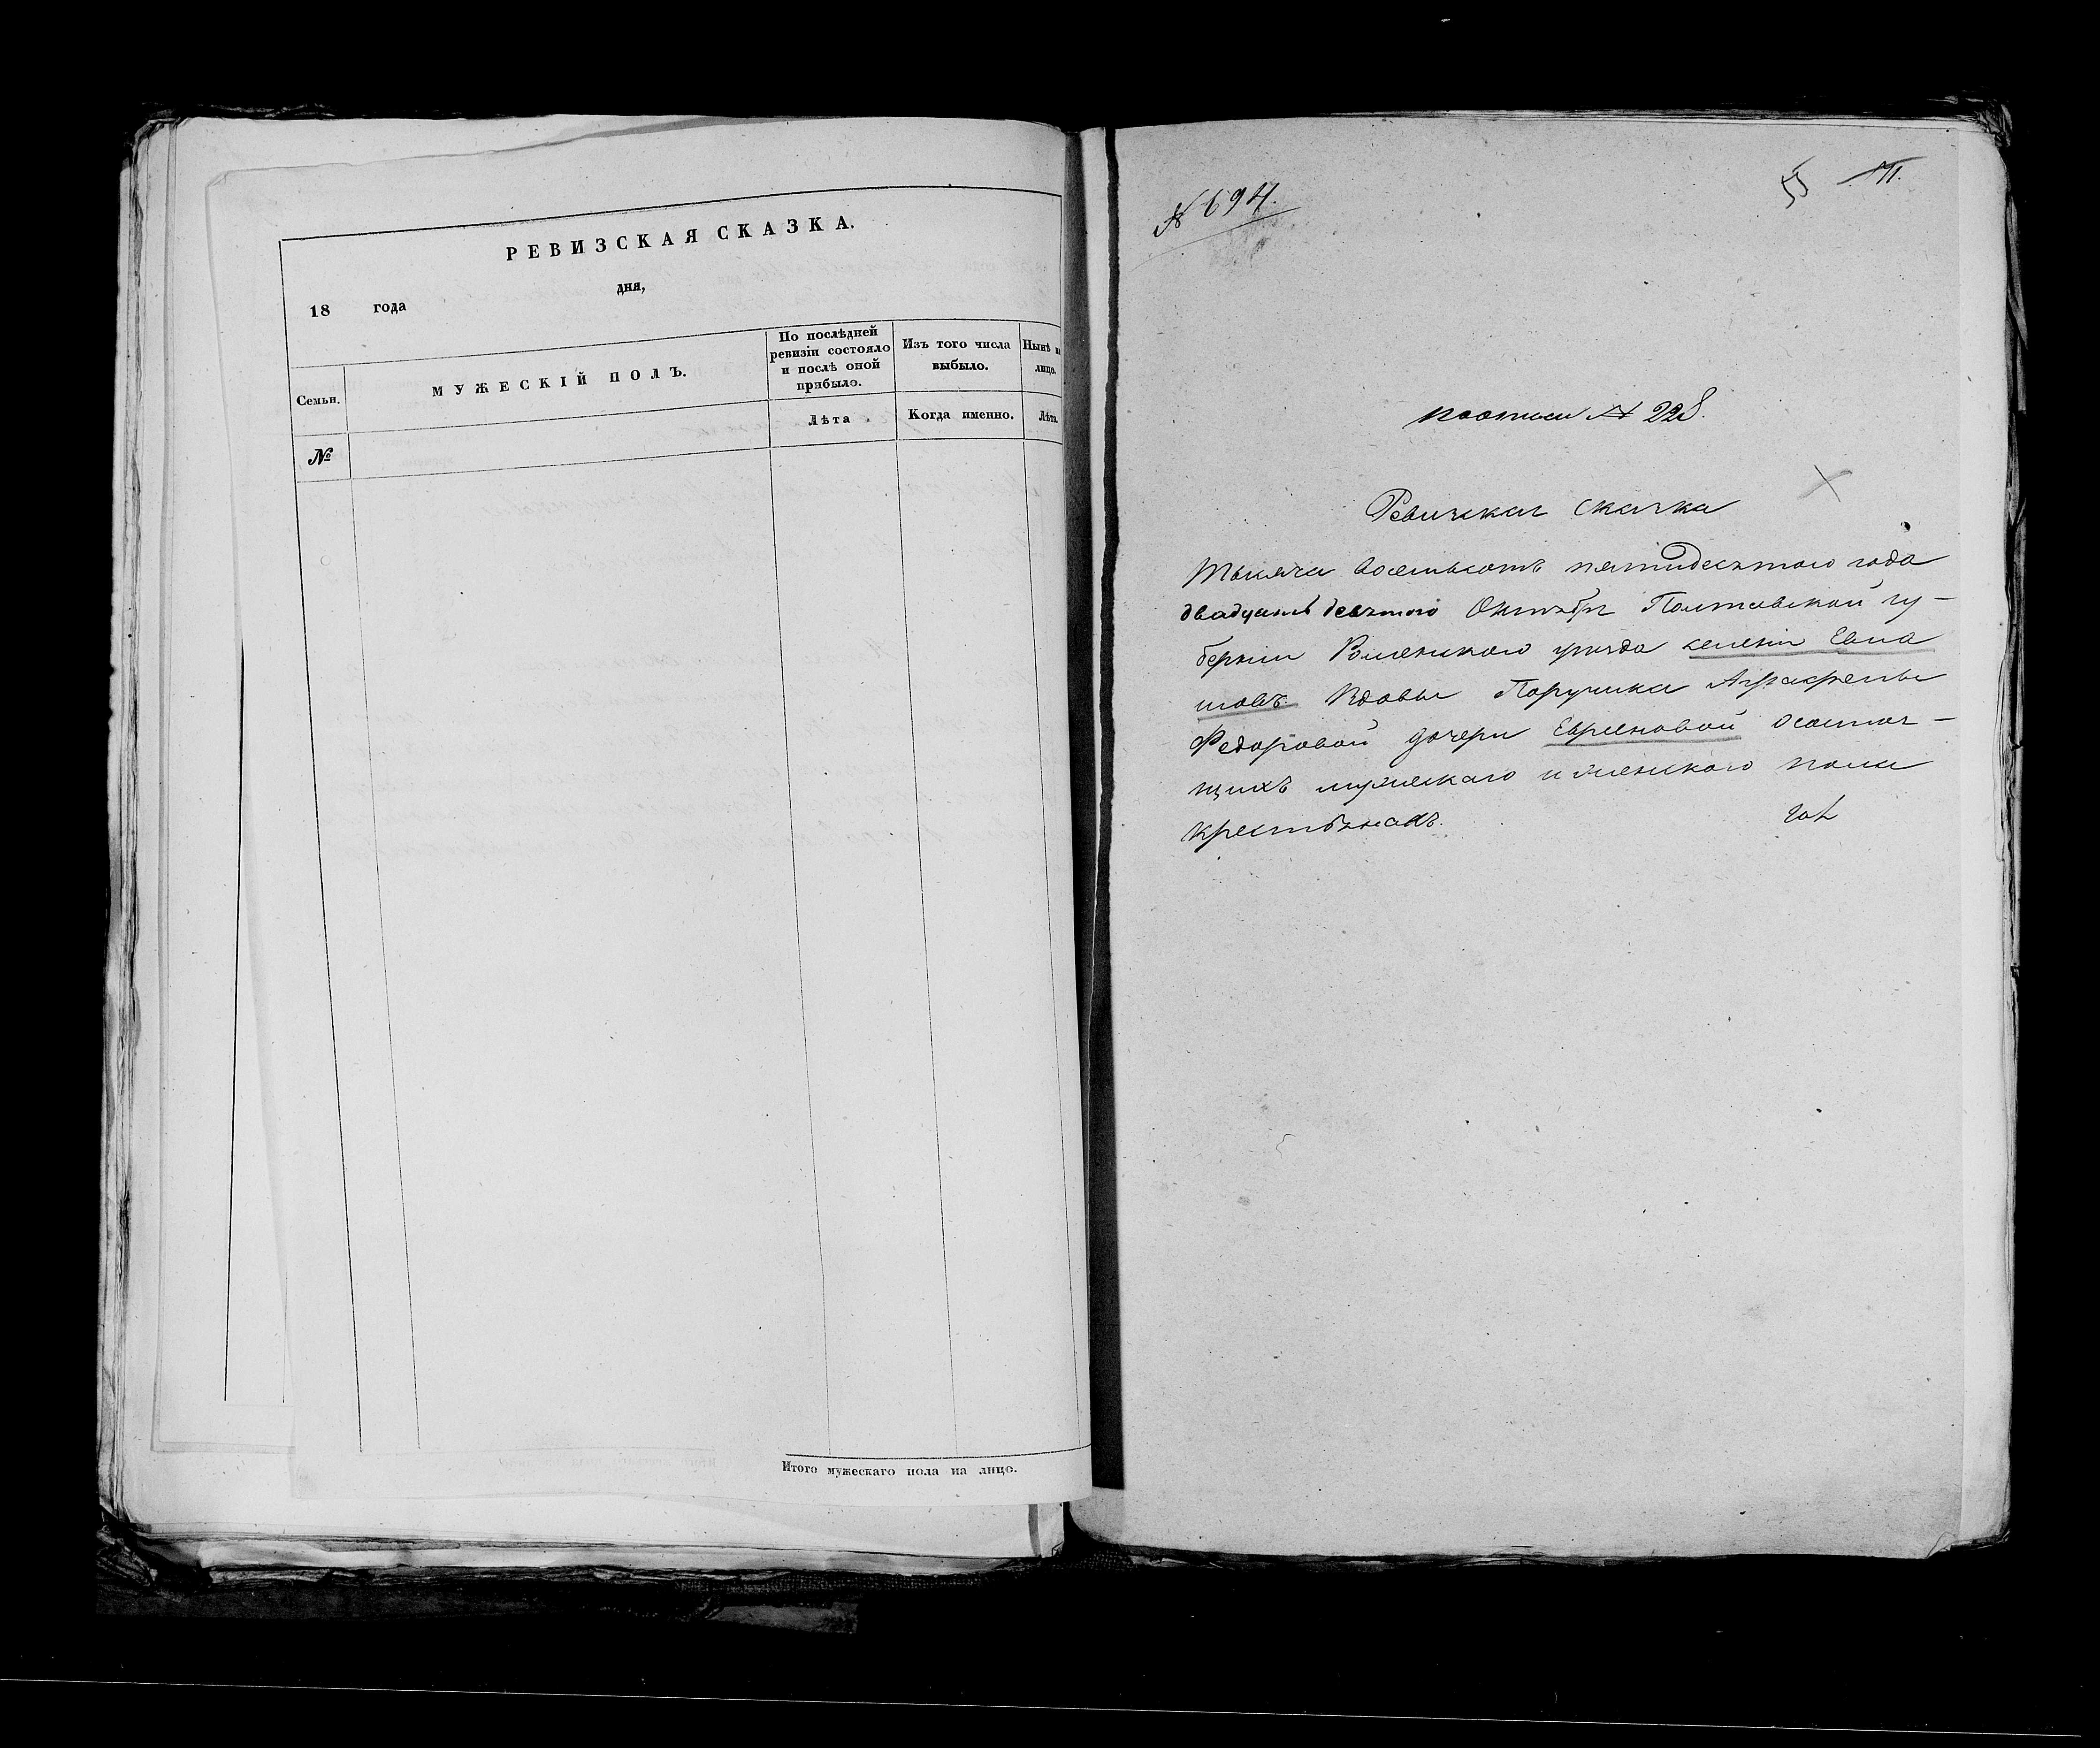 РЕВИЗСКАЯ СКАЗКА.
18 года дня,
Семьи.
МУЖЕСКІЙ ПОЛЪ.
По послѣдней
ревизіи состояло
и послѣ оной
прибыло.
Изъ того числа
выбыло.
Нынѣ на
лицо.
Лѣта.
Когда именно.
Лѣта.
№
Итого мужескаго пола на лицо.
№ 694.
поописи № 228.
Ревизская сказка
Тысяча восемьсотъ пятидесятого года
двадцать девятого Октября Полтавской гу-
берніи Роменского уезда селенія Евла
шовъ Вдовы Поручика Аграфены
Федоровой дочери Евреиновой осостоя-
щихъ мужескаго и женского пола
крестьянахъ.